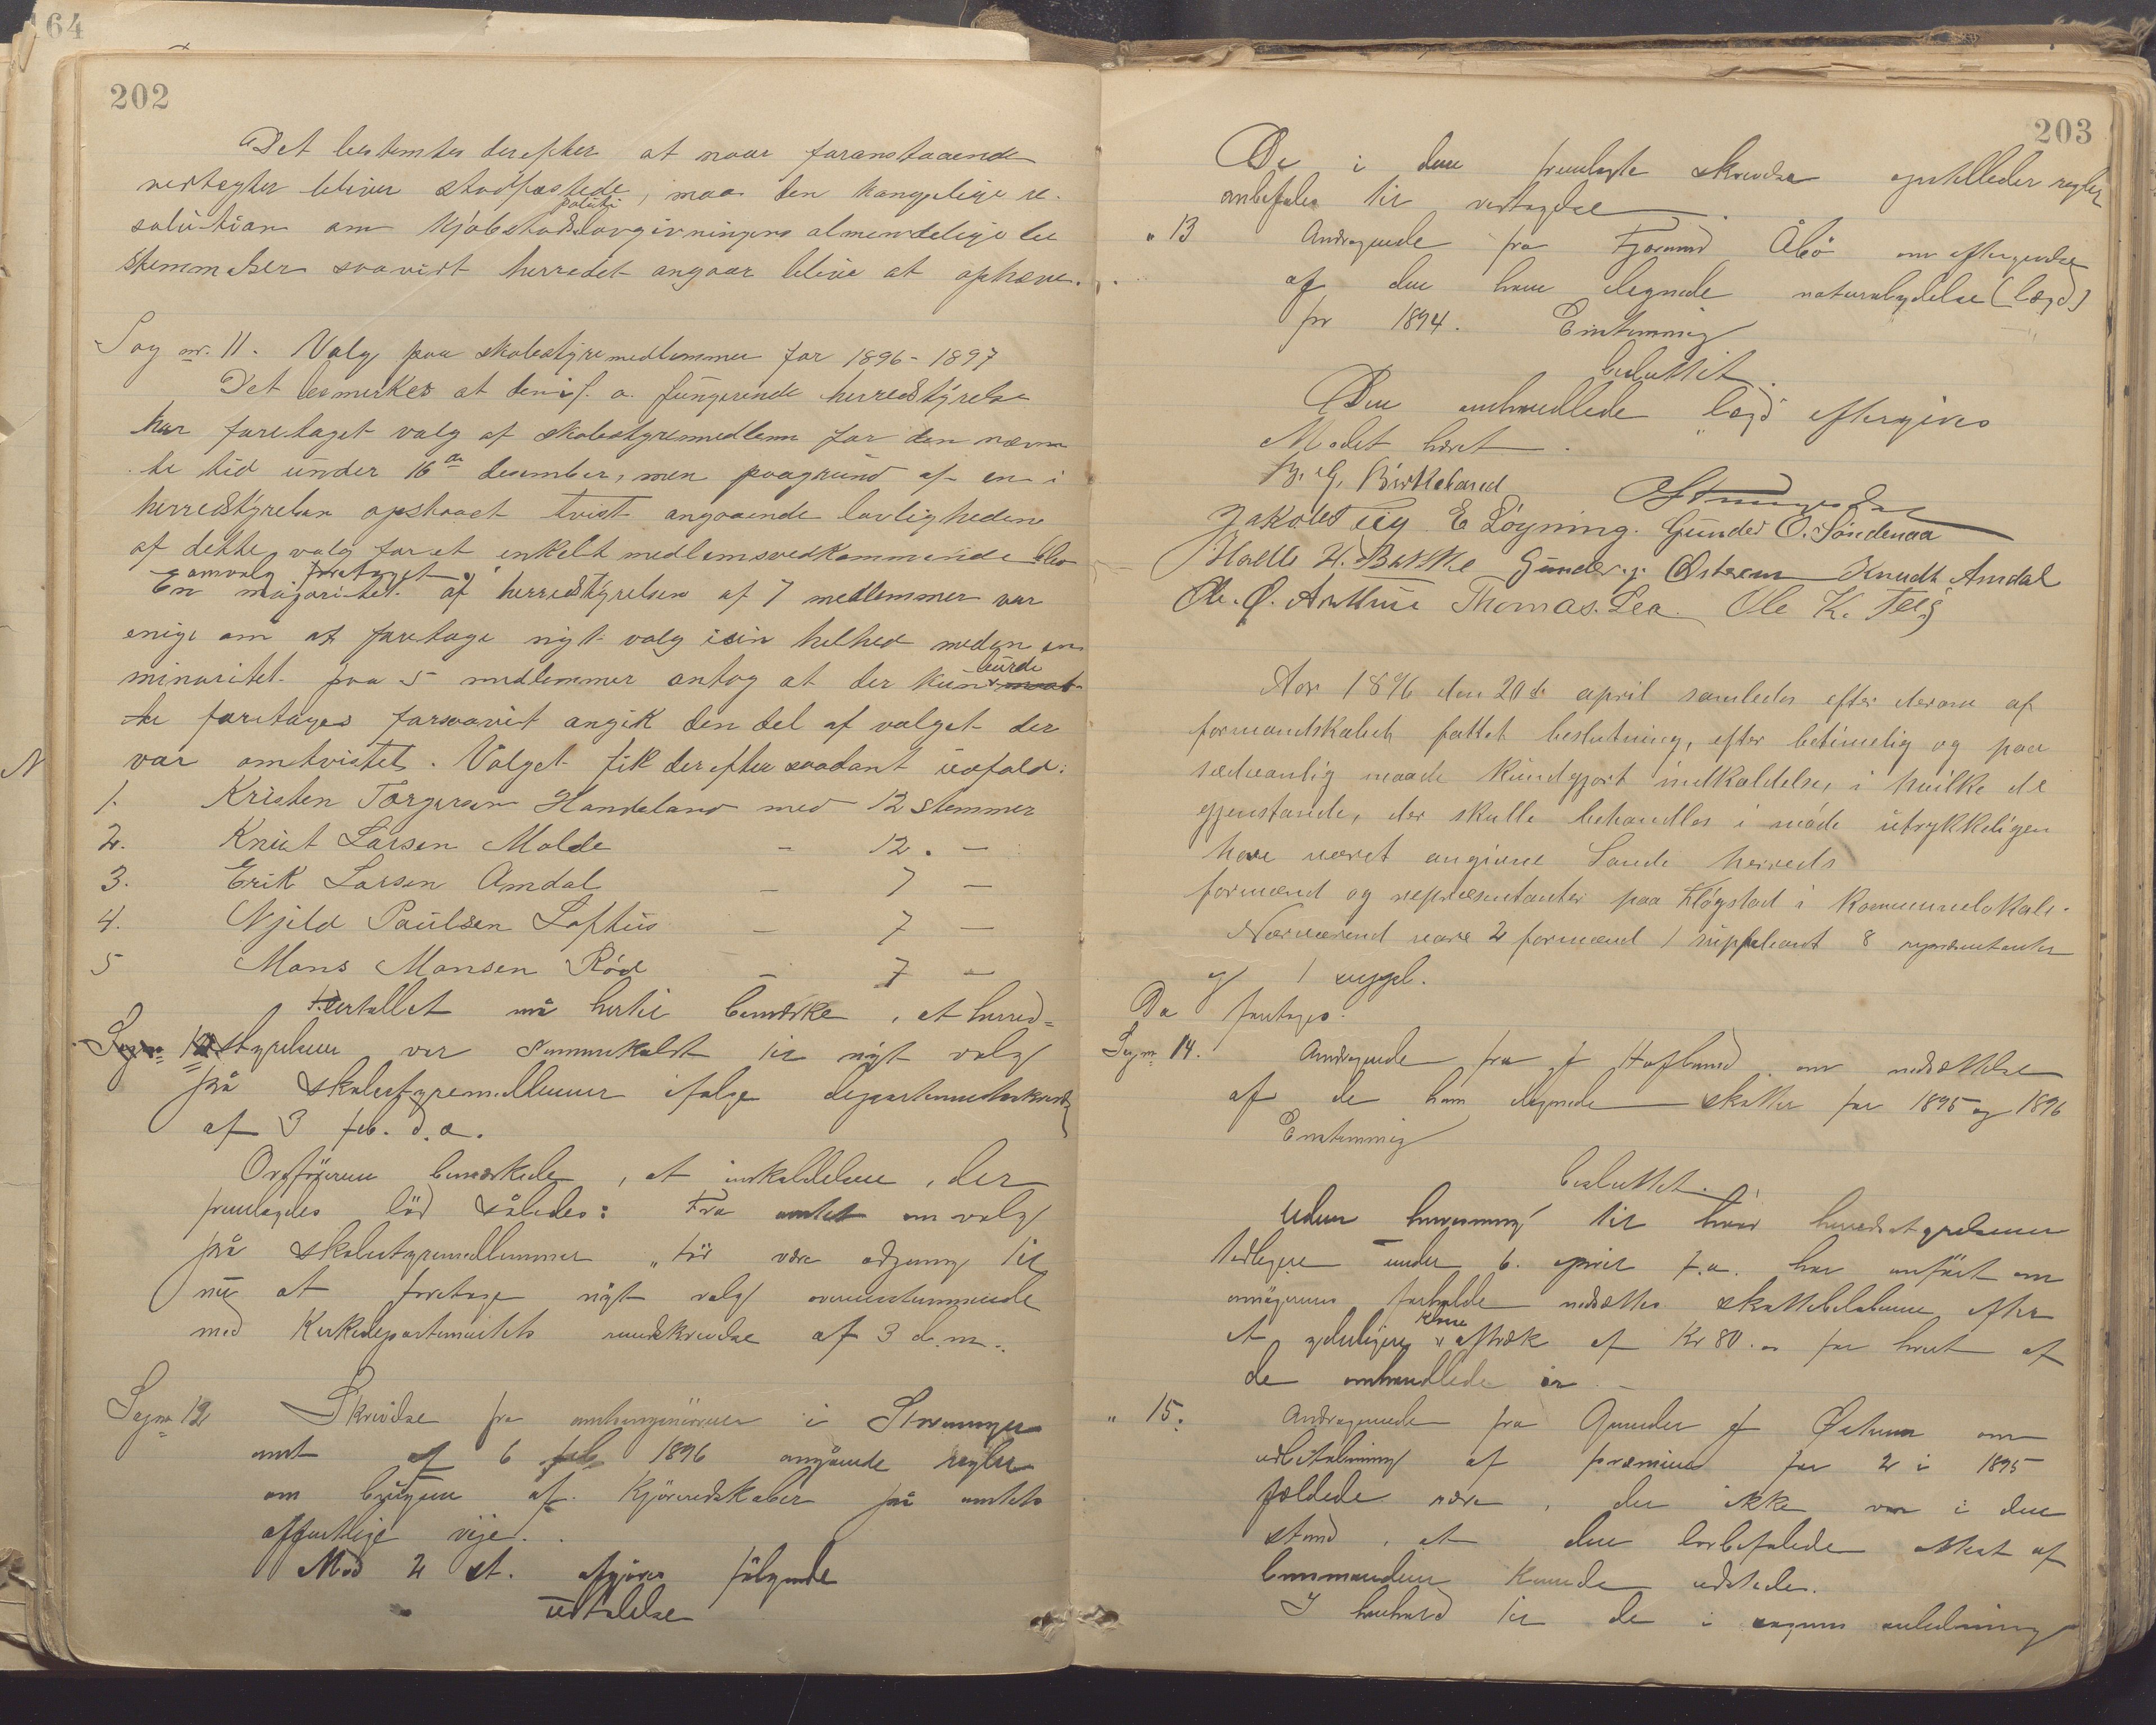 202
Det bestemtes derefter at naar foranstaaende
vedtægter bliver stadfæstede, maa den kongelige re-
solution om kjøbstadslovgivningens almindelige be
politi
stemmelser saavidt herredet angaar blive at ophæve.
Sag nr. 11. Valg paa skolestyremedlemmer for 1896-1897
Det bemerkes at den i f. a. fungerende herredstyrelse
har foretaget valg af skolestyremedlem for den nævn
te tid under 16de desember, men paagrund af en i
herredstyrelsen opstaaet tvist angaaende lovligheden
af dette valg for et enkelt medlemsvedkommende blev
omvalg foretaget.
En majoritet af herredstyrelsen af 7 medlemmer var
enige om at foretage nyt valg i sin helhed medens en
minoritet paa 5 medlemmer antog at der kun burde
foretages forsaavit angik den del af valget der
var omtvistet. Valget fik derefter saadant udfald:
1. Kristen Torgersen Handeland med 12 stemmer
2. Knut Larsen Molde - 12. -
3. Erik Larsen Amdal - 7 -
4. Njeld Paulsen Loftus - 7 -
5 Mons Monsen Rød - 7 -
Flertallet må hertil bemærke, at herred=
styrelsen var sammenkaldt til nyt valg
på skolestyremedlemmer ifølge departementsskriv
af 3 feb. d.a.
Ordføreren bemærkede, at indkaldelsen, der
fremlagdes lød således: Fra amtet om valg
på skolestyremedlemmer "tør være adgang til
nu at foretage nyt valg overensstemmende
med Kirkedepartementets rundskrivelse af 3 d.m.
Sag nr 12 Skrivelse fra amtsingeniøren i Stavanger
amt af 6 feb 1896 angående regler
om brugen af kjøreredskaber på amtets
offentlige veje.
Mod 2 st. afgives følgende
udtalelse
203
De i den fremlagte skrivelse opstillede regler
anbefales til vedtagelse.
" 13 Andragende fra Fjeramd Åbø om eftergivelse
af den ham ilignede naturalydelse (lægd)
for 1894. Enstemmig
besluttet.
Den omhandlede lægd eftergives
Mødet hævet.
B. G. Birkeland
Jakob Teig E Løyning. Gunder O. Søndenaa
H. Bakke Gunder J. Østrem Knudt Amdal
Ole. Ø. Thomas. Lea. Ole K. Teig
Aar 1896 den 20de april samledes efter derom af
formandskabet fattet beslutning, efter betimelig og paa
sædvanlig maade kundgjort indkaldelse, i hvilke de
gjenstande, der skulle behandles i møde udtrykkeligen
have været angivne Sande herreds
formænd og repræsentanter paa Fløgstad i kommunelokale.
Nærværend vare 2 formænd 1 suppleant 8 repræsentanter
og 1 suppl.
Da foretages.
Sag nr 14. Andragende fra J Hafland om nedsættelse
af de ham ilignede skatter for 1895 og 1896
Enstemmig
besluttet.
Uden henvisning til hvad herredstyrelsen
tidligere under 6. april f.a. har anført om
ansøgerens forholde nedsættes skattebeløbene efter
et yderligere aftræk af Kr 80.00 for hvert af
de omhandlede år.
" 15. Andragende fra Gunder J Østrem om
udbetalning af præmie for 2 i 1895
fældede ræve, der ikke var i den
stand, at den lovbefalede attest af
lensmanden kunde udstedes.
I henhold til de i sagens anledning